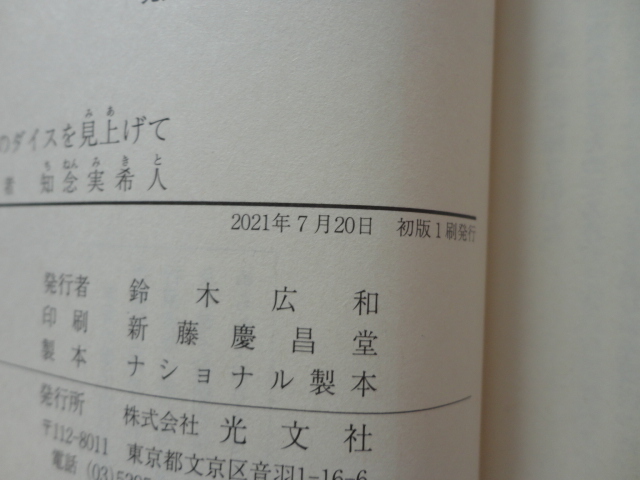 のダイスを見上げて
みあ
著者 知念実希人
ちねんみきと
2021年7月20日 初版1刷発行
発行者 鈴木広和
印刷 新藤慶昌堂
製本 ナショナル製本
発行所 株式会社 光文社
〒112-8011 東京都文京区音羽1-16-6
電話 (03)